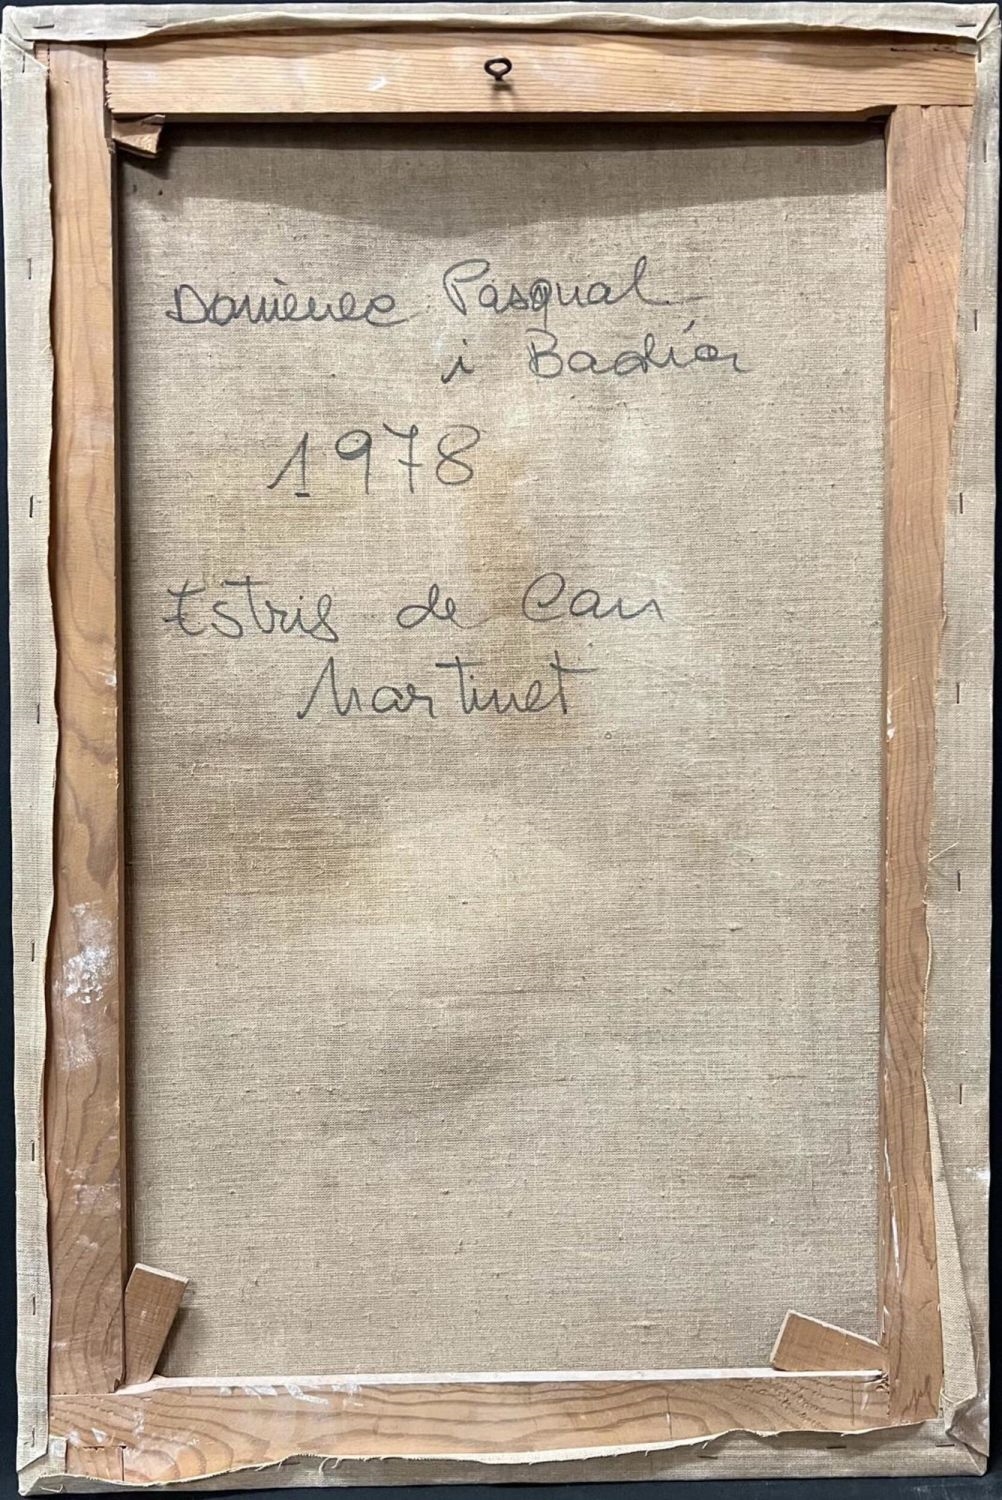 Domènec Pasqual
i Badía
1978
Estris de Can
Martinet